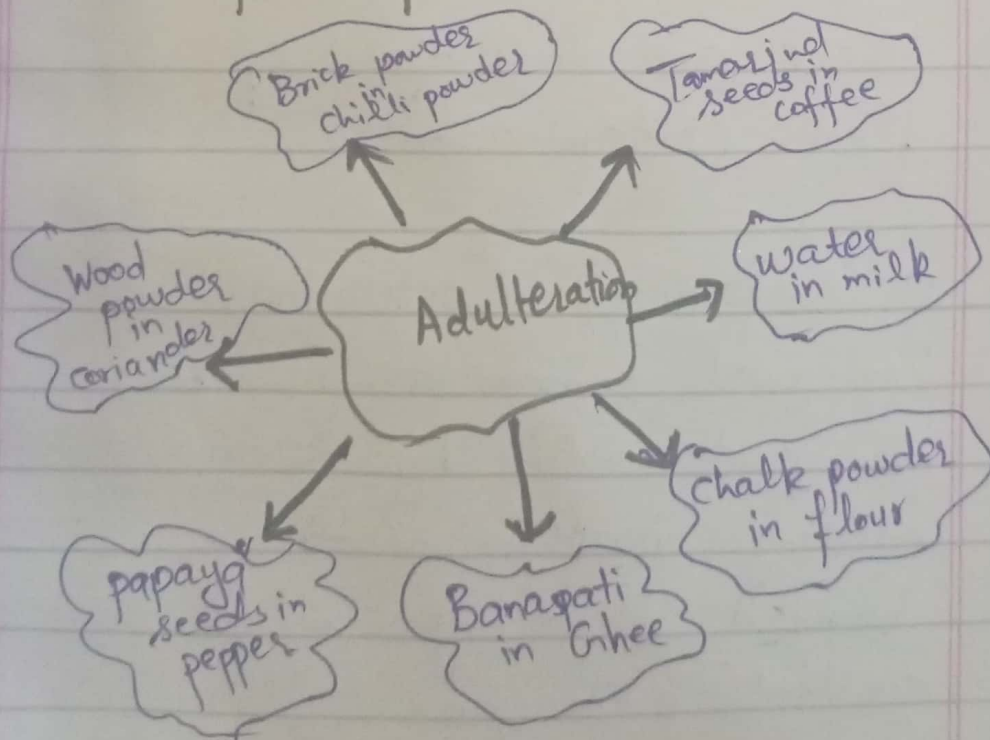 Brick powder
in
chilli powder
Tamarind
seeds in
coffee
Wood
powder
in
coriander
Adulteration
water
in milk
chalk powder
in flour
papaya
seeds in
pepper
Banaspati
in Ghee